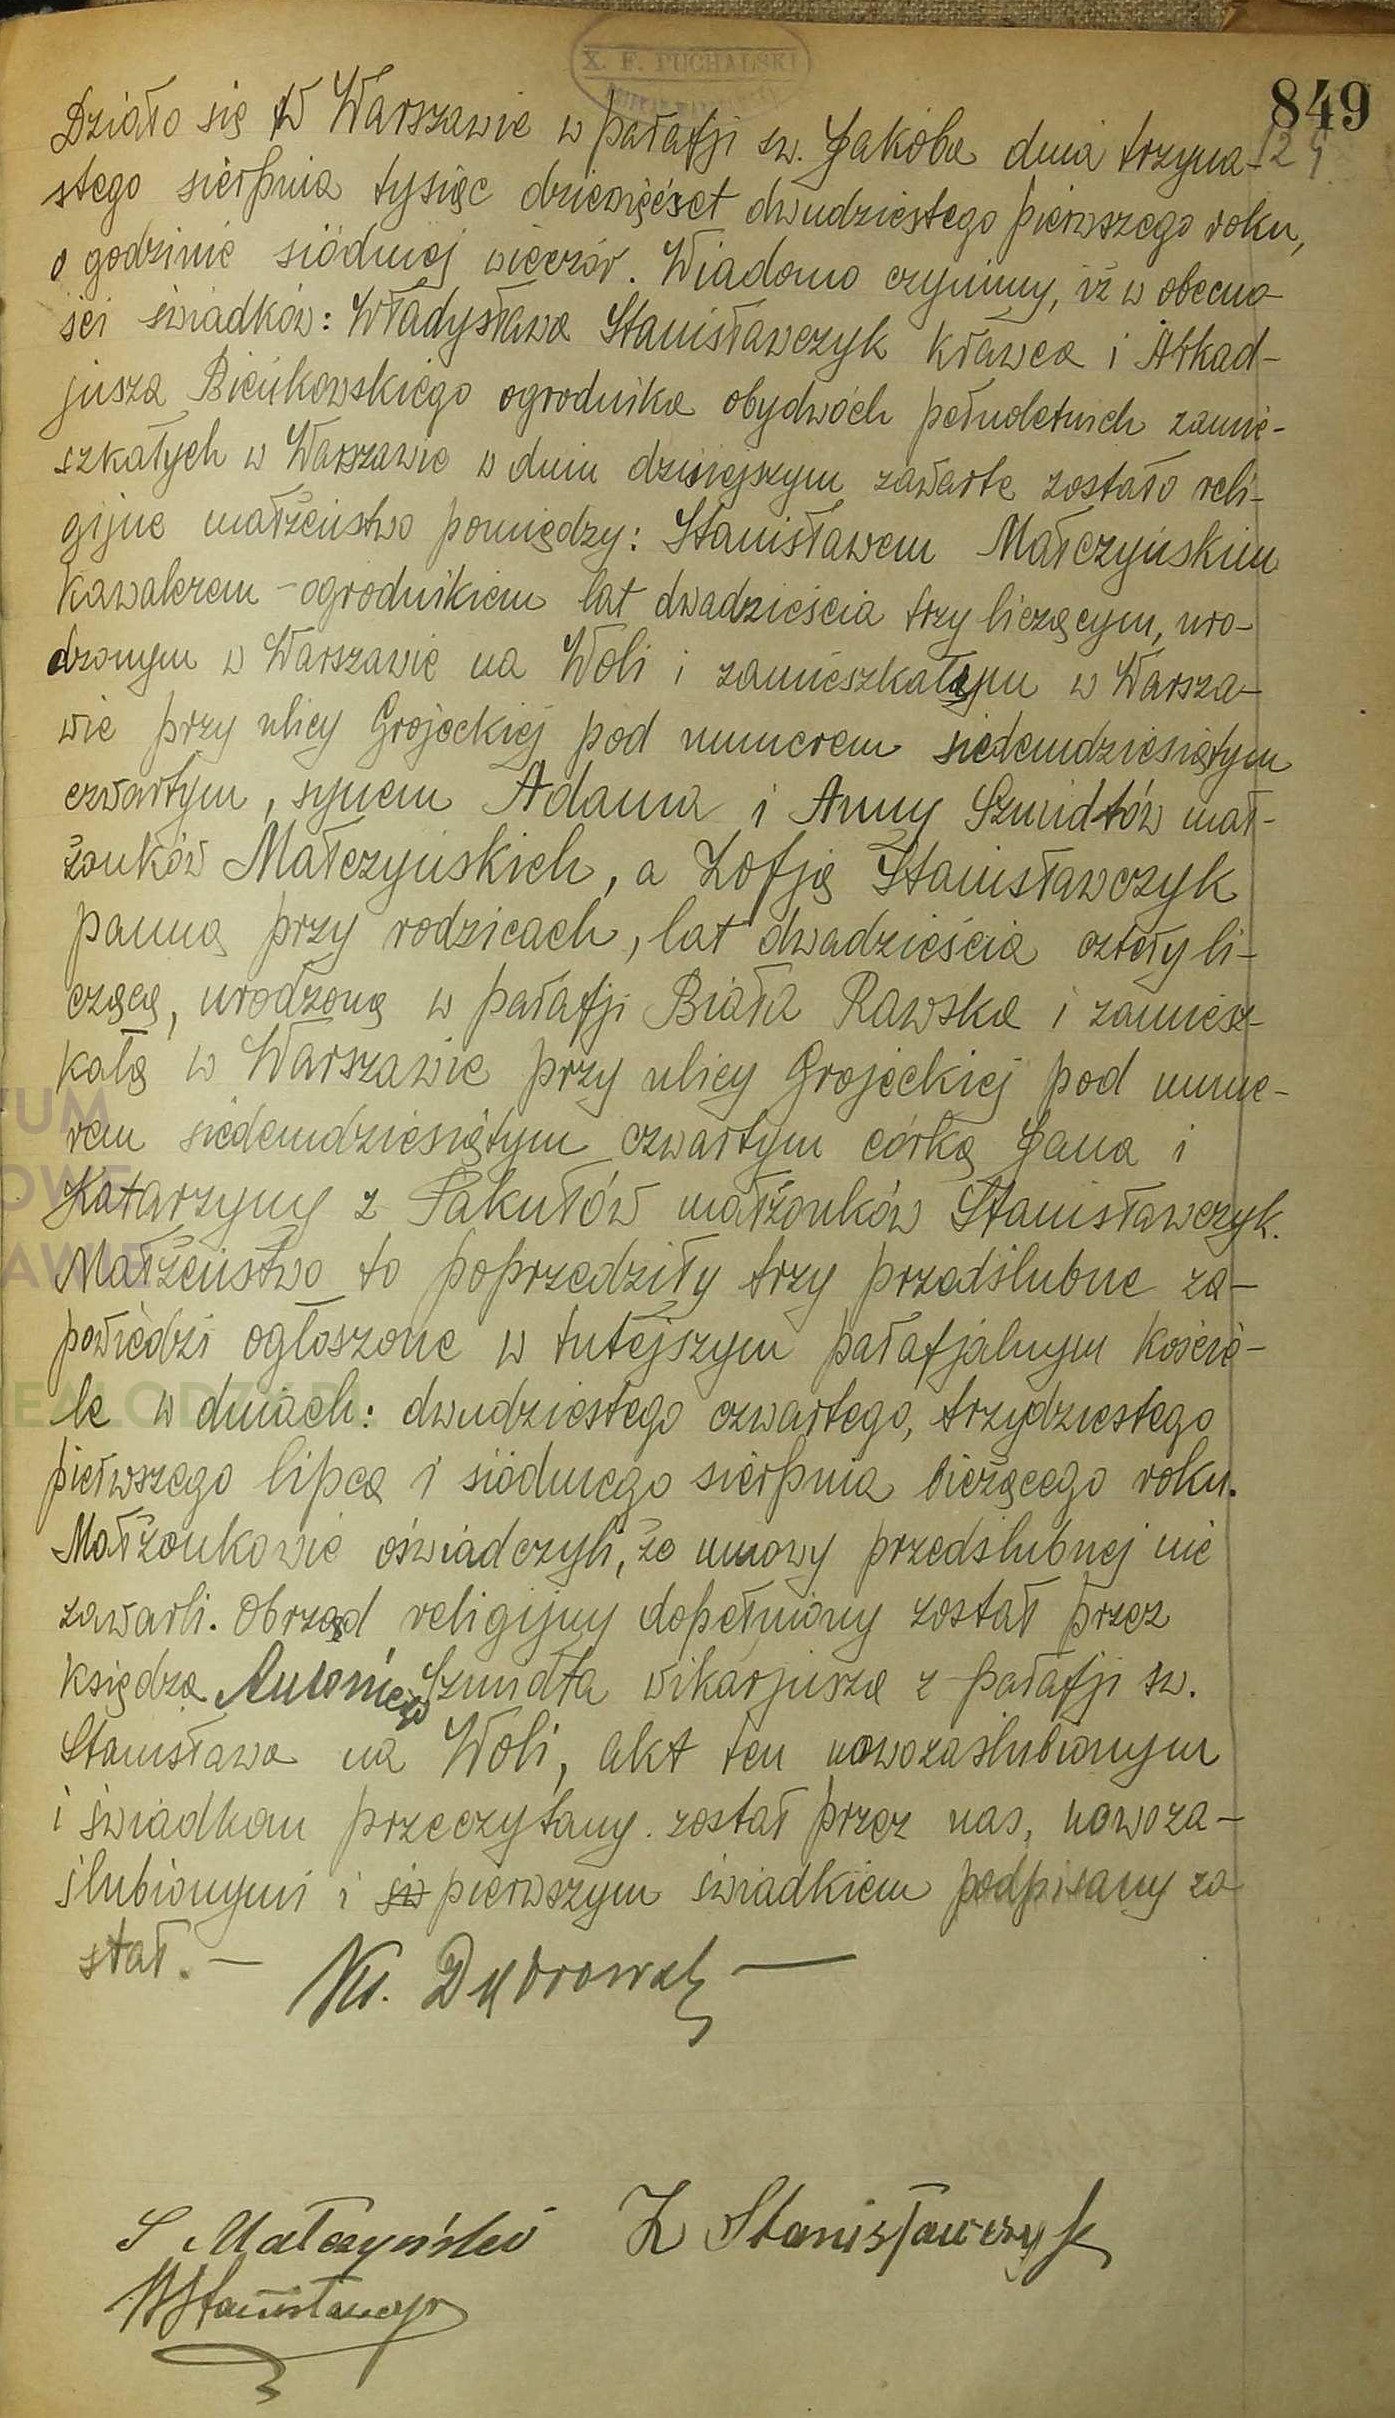 X. F. PUCHALSKI
849
Działo się W Warszawie w parafji św. Jakóba dnia trzyna-
stego sierpnia tysiąc dziewięćset dwudziestego pierwszego roku,
o godzinie siódmej wieczór. Wiadomo czynimy, iż w obecno-
ści świadków: Władysława Stanisławczyk krawca i Arkad-
jusza Bieńkowskiego ogrodnika obydwóch pełnoletnich zamie-
szkałych w Warszawie w dniu dzisiejszym zawarte zostało reli-
gijne małżeństwo pomiędzy: Stanisławem Małczyńskim
kawalerem - ogrodnikiem lat dwadzieścia trzy liczącym, uro-
dzonym w Warszawie na Woli i zamieszkałym w Warsza-
wie przy ulicy Grojeckiej pod numerem siedemdziesiątym
czwartym, synem Adama i Anny Szmidtów mał-
żonków Małczyńskich, a Zofją Stanisławczyk
panną przy rodzicach, lat dwadzieścia cztery li-
czącą, urodzoną w parafji Biała Rawska i zamiesz-
kałą w Warszawie przy ulicy Grojeckiej pod nume-
rem siedemdziesiątym czwartym córką Jana i
Katarzyny z Pakułów małżonków Stanisławczyk.
Małżeństwo to poprzedziły trzy przedślubne za-
powiedzi ogłoszone w tutejszym parafjalnym kości-
ele w dniach: dwudziestego czwartego, trzydziestego
pierwszego lipca i siódmego sierpnia bieżącego roku.
Małżonkowie oświadczyli, że umowy przedślubnej nie
zawarli. Obrząd religijny dopełniony został przez
księdza Antoniego Szmidta wikarjusza z parafji św.
Stanisława na Woli, akt ten nowozaślubionym
i świadkom przeczytany został przez nas, nowoza-
ślubionymi i św pierwszym świadkiem podpisany zo
stał. —
S Małczyński Z Stanisławczyk
WStanisławczyk
TUM
OWE
AWIE